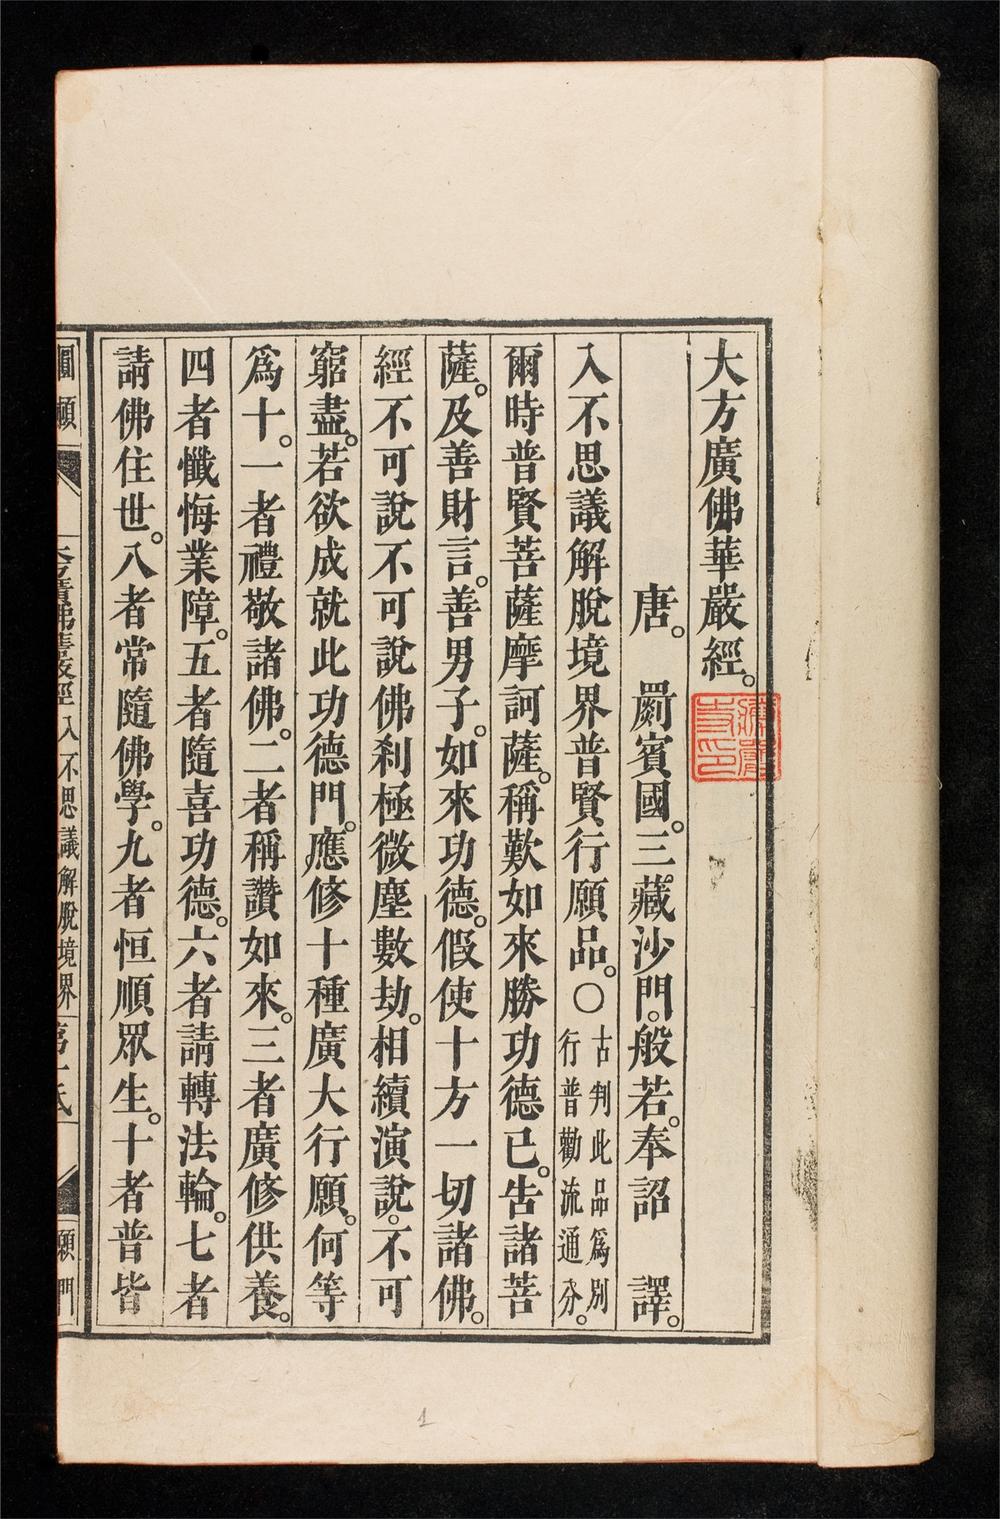 大方廣佛華嚴經。
唐。罽賓國。三藏沙門。般若。奉詔譯。
入不思議解脫境界普賢行願品。〇古判此品為別
行普勸流通分。
爾時普賢菩薩摩訶薩。稱歎如來勝功德已。告諸菩
薩。及善財言。善男子。如來功德。假使十方一切諸佛。
經不可說不可說佛刹極微塵數劫。相續演說。不可
窮盡。若欲成就此功德門。應修十種廣大行願。何等
為十。一者禮敬諸佛。二者稱讚如來。三者廣修供養。
四者懺悔業障。五者隨喜功德。六者請轉法輪。七者
請佛住世。八者常隨佛學。九者恒順眾生。十者普皆
入不思議解脫境界
願門
1